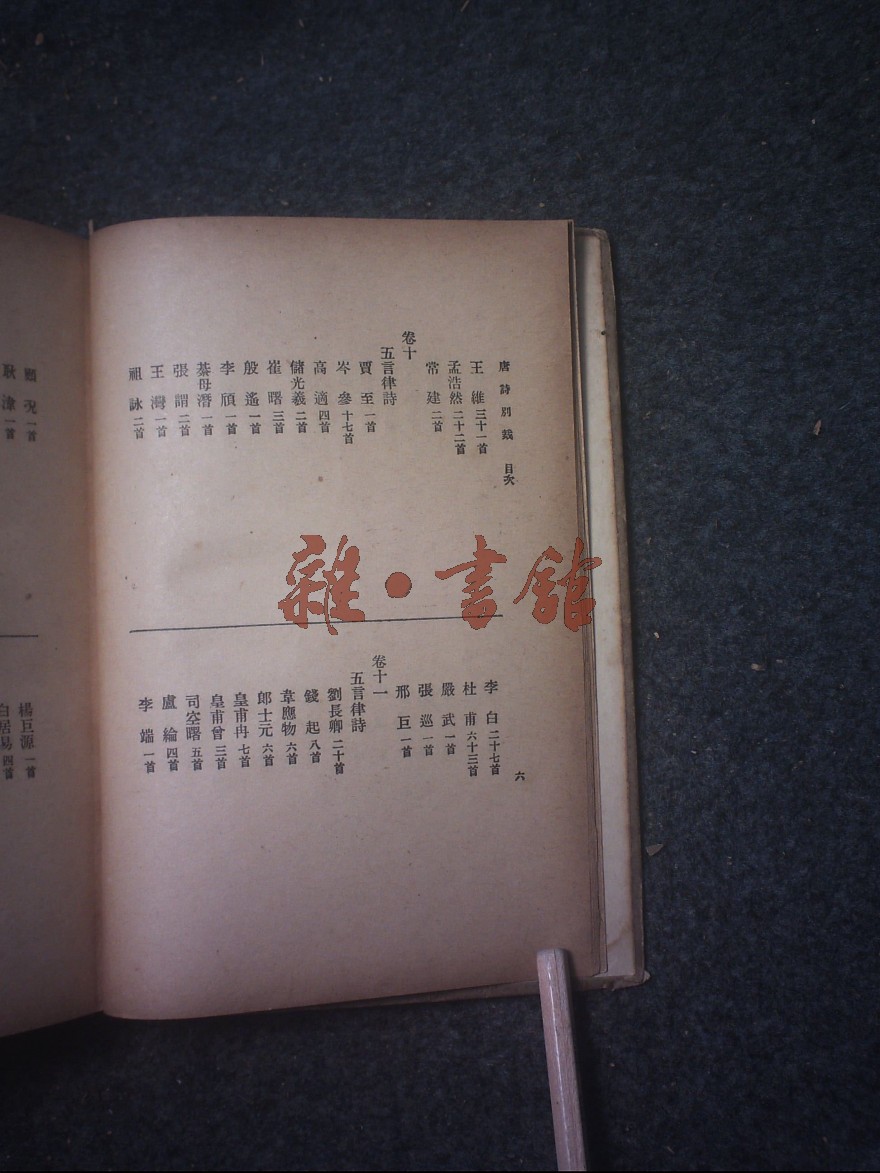 唐詩別裁 目次
王維 三十一首
孟浩然 二十二首
常建 二首
卷十
五言律詩
賈至 一首
岑參 十七首
高適 四首
儲光羲 二首
崔曙 三首
殷遙 一首
李頎 一首
綦母潛 一首
張謂 二首
王灣 一首
祖詠 二首
六
李白 二十七首
杜甫 六十三首
嚴武 一首
張巡 一首
邢巨 一首
卷十一
五言律詩
劉長卿 二十首
錢起 八首
韋應物 六首
郎士元 六首
皇甫冉 七首
皇甫曾 三首
司空曙 五首
盧綸 四首
李端 一首
顧況 一首
耿湋 一首
楊巨源 一首
白居易 四首
雜·書館